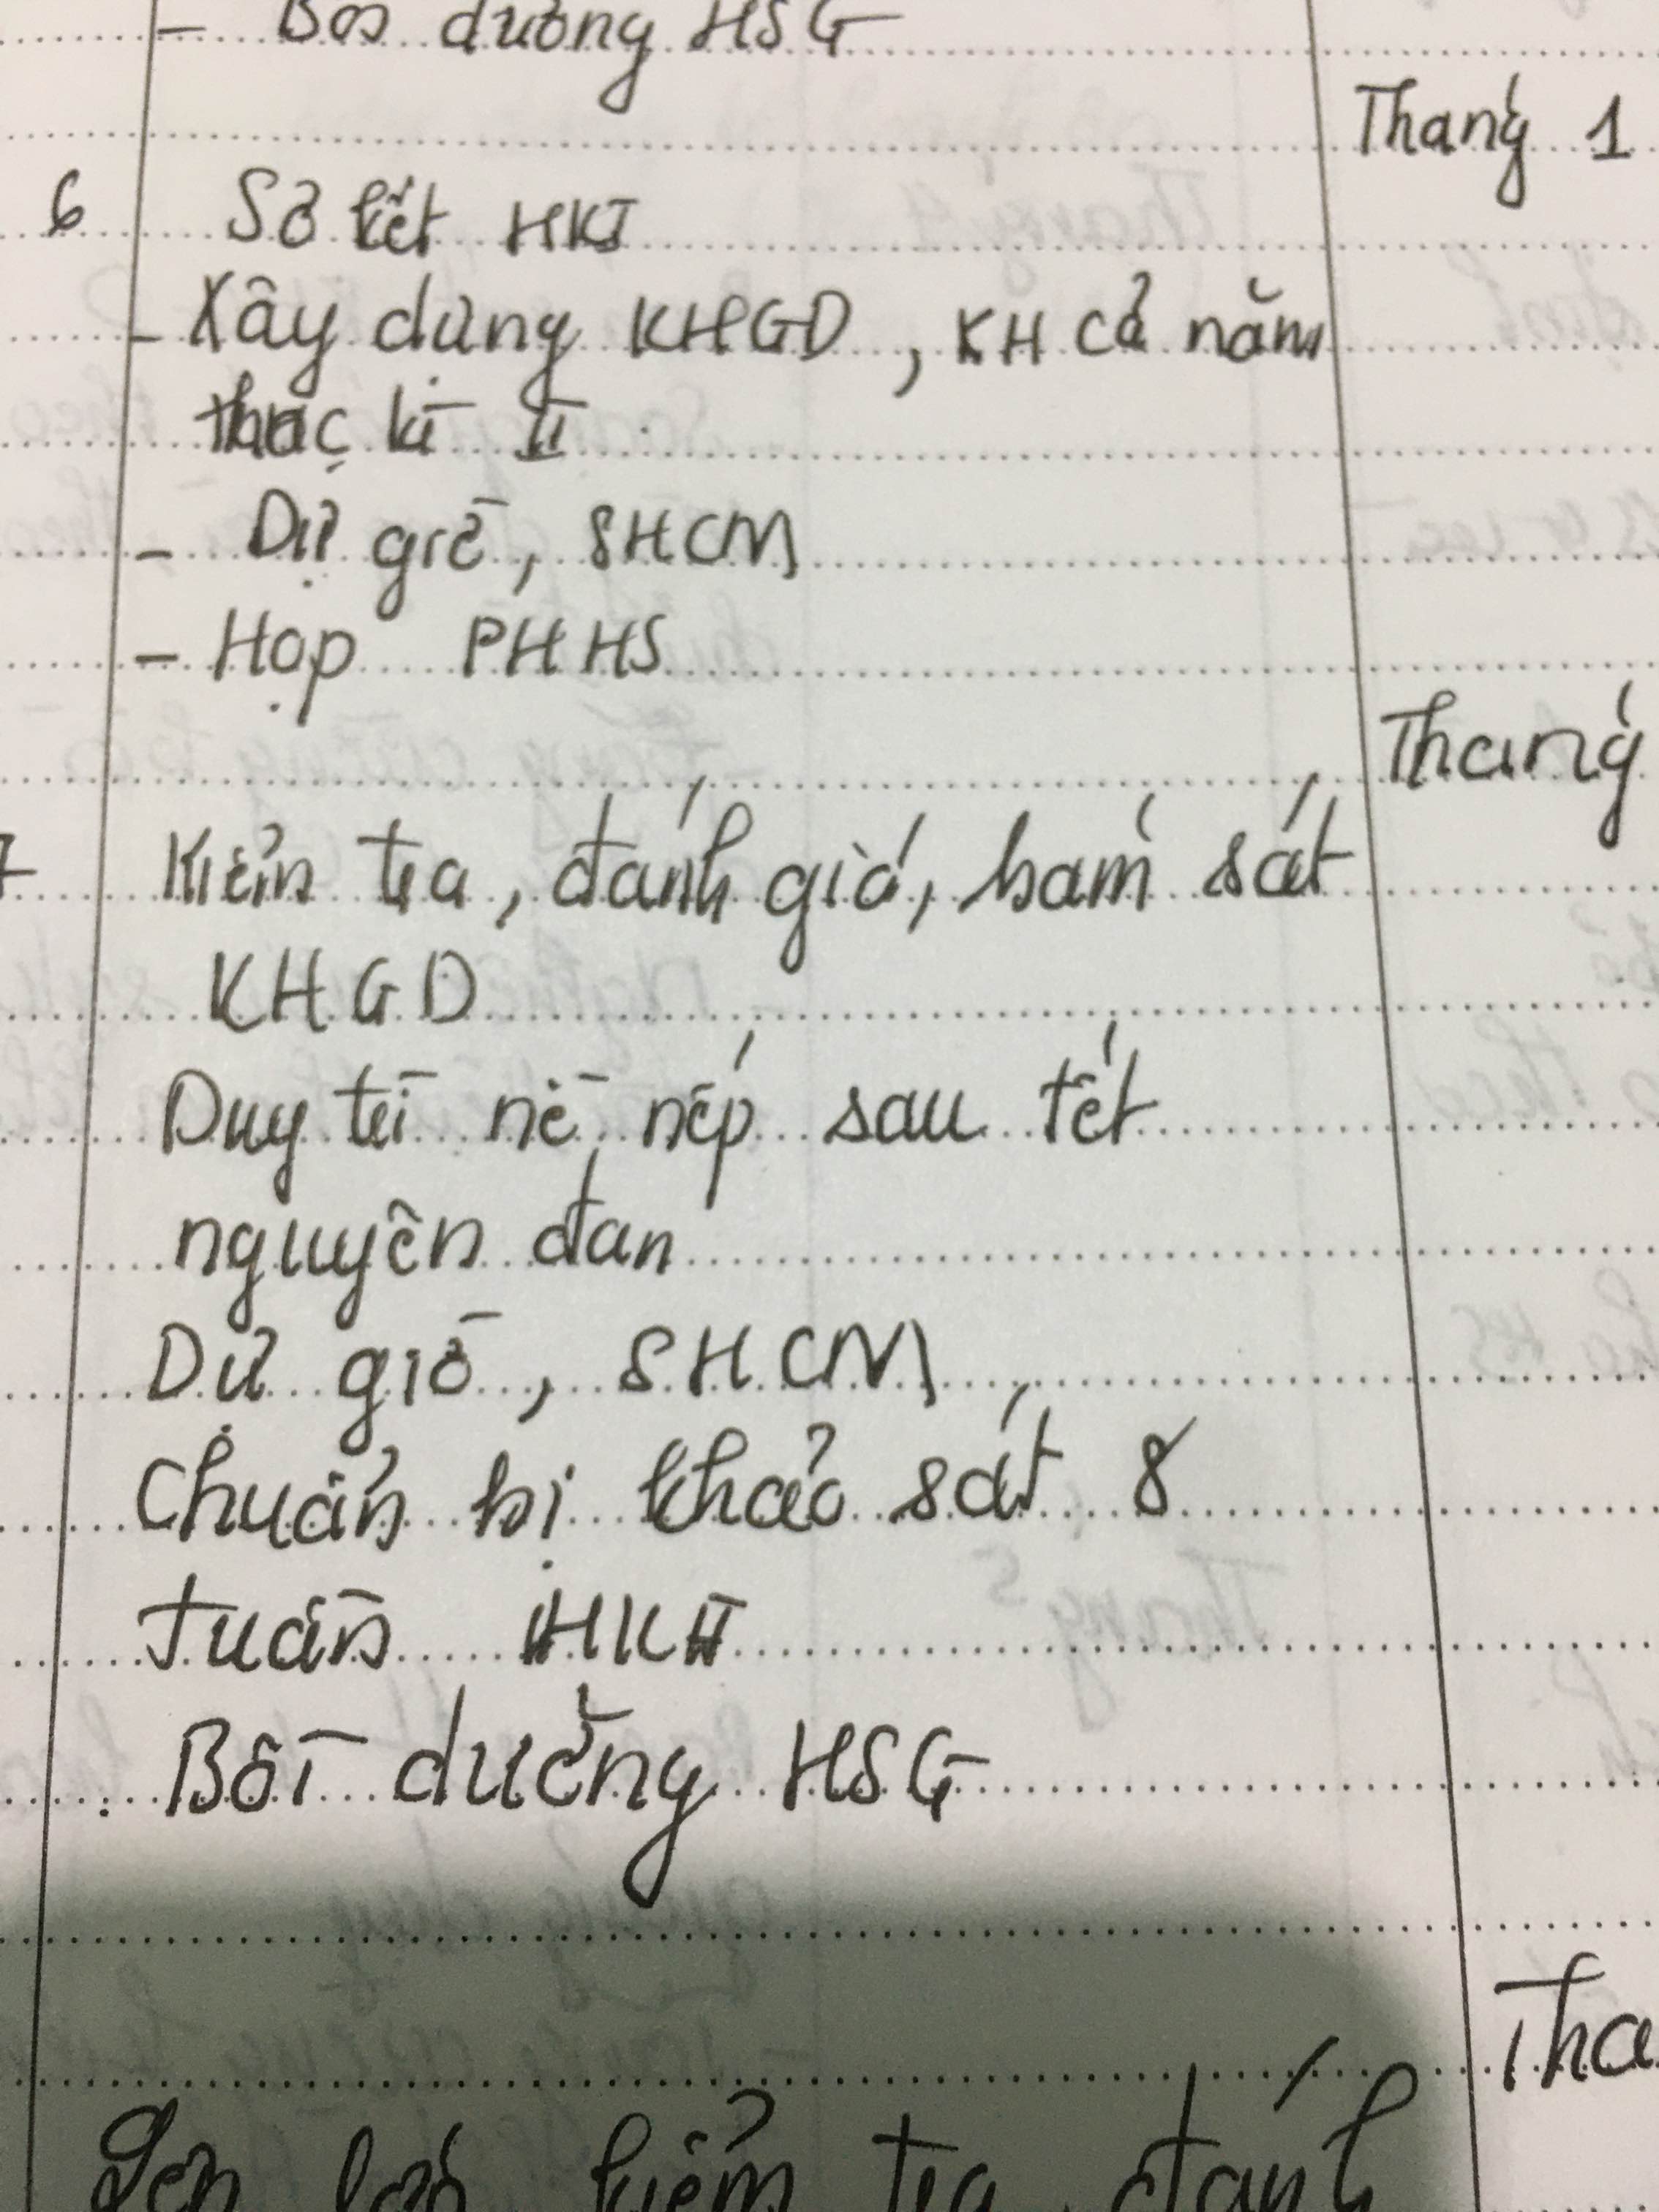 - Bồi dưỡng HSG
Tháng 1
6 Sơ kết HKI
- Xây dựng KHGD, KH cả năm
học kì II
- Dự giờ, SHCM
- Họp PHHS
Tháng
7 Kiểm tra, đánh giá, bám sát
KHGD
Duy trì nề nếp sau tết
nguyên đan
Dự giờ, SHCM
Chuẩn bị khảo sát 8
tuần HKII
Bồi dưỡng HSG
Tha
kiểm tra, đánh